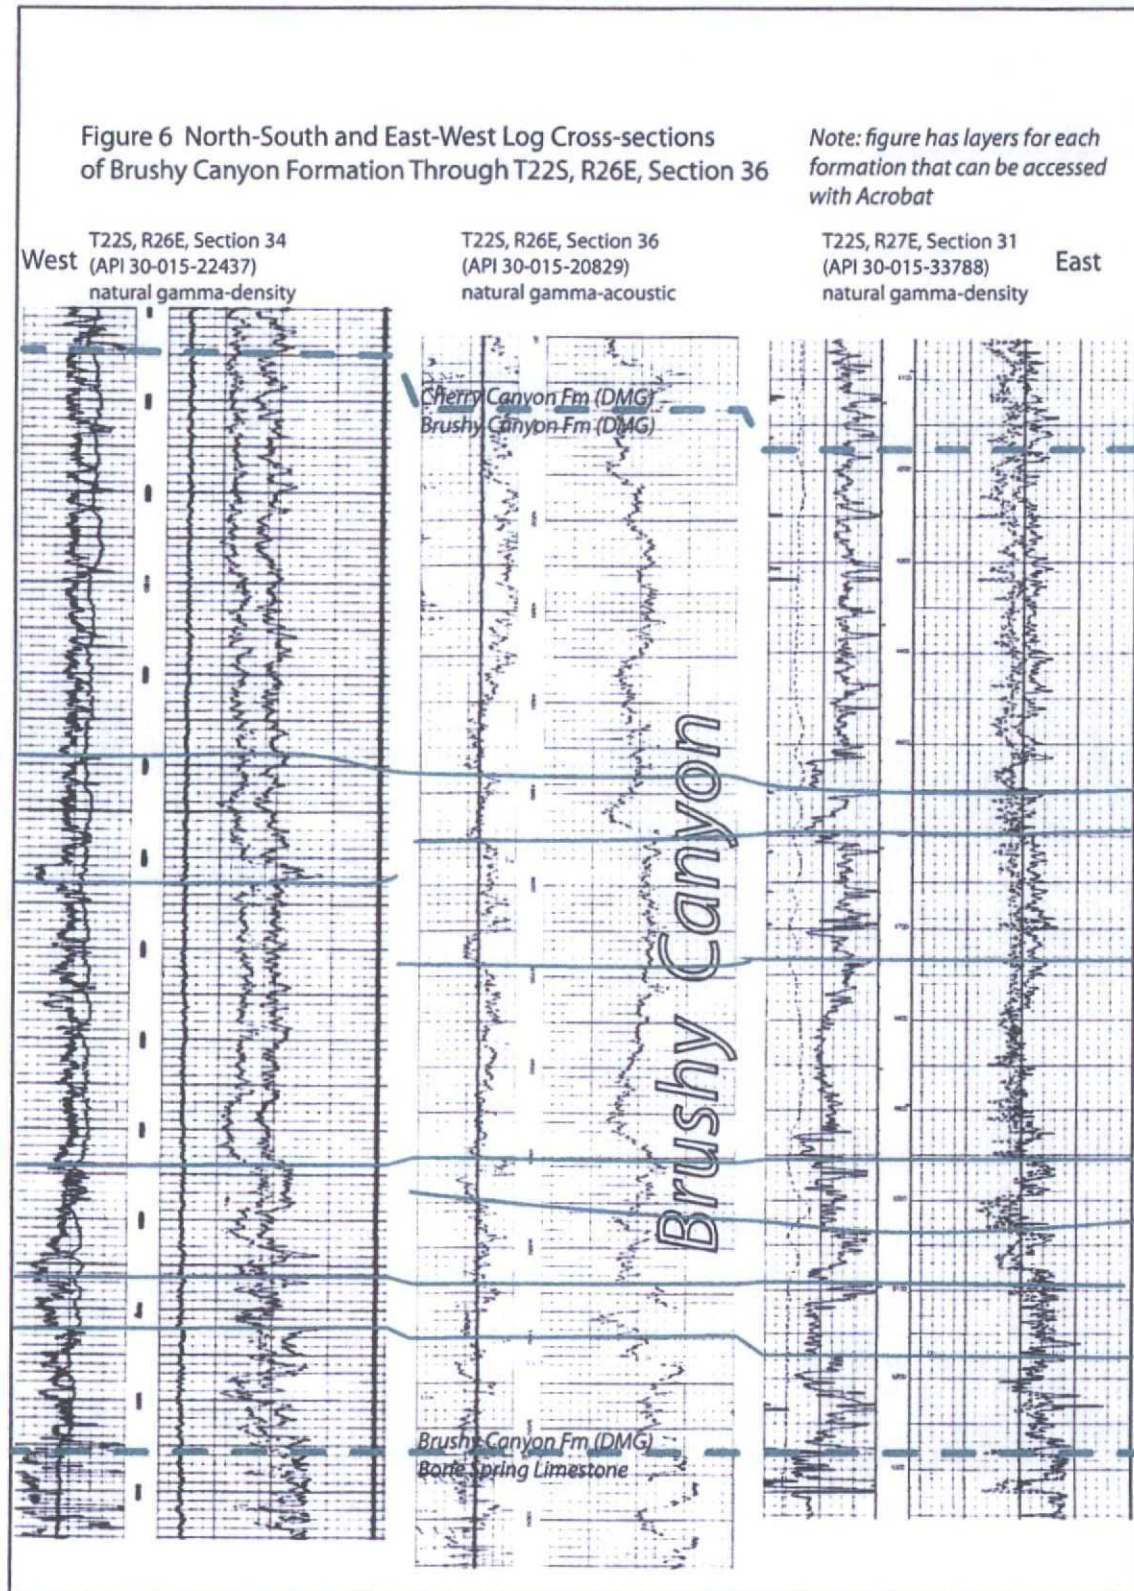 Figure 6 North-South and East-West Log Cross-sections
of Brushy Canyon Formation Through T22S, R26E, Section 36
Note: figure has layers for each
formation that can be accessed
with Acrobat
West
T22S, R26E, Section 34
(API 30-015-22437)
natural gamma-density
T22S, R26E, Section 36
(API 30-015-20829)
natural gamma-acoustic
T22S, R27E, Section 31
(API 30-015-33788)
natural gamma-density
East
Cherry Canyon Fm (DMG)
Brushy Canyon Fm (DMG)
Brushy Canyon
Brushy Canyon Fm (DMG)
Bone Spring Limestone